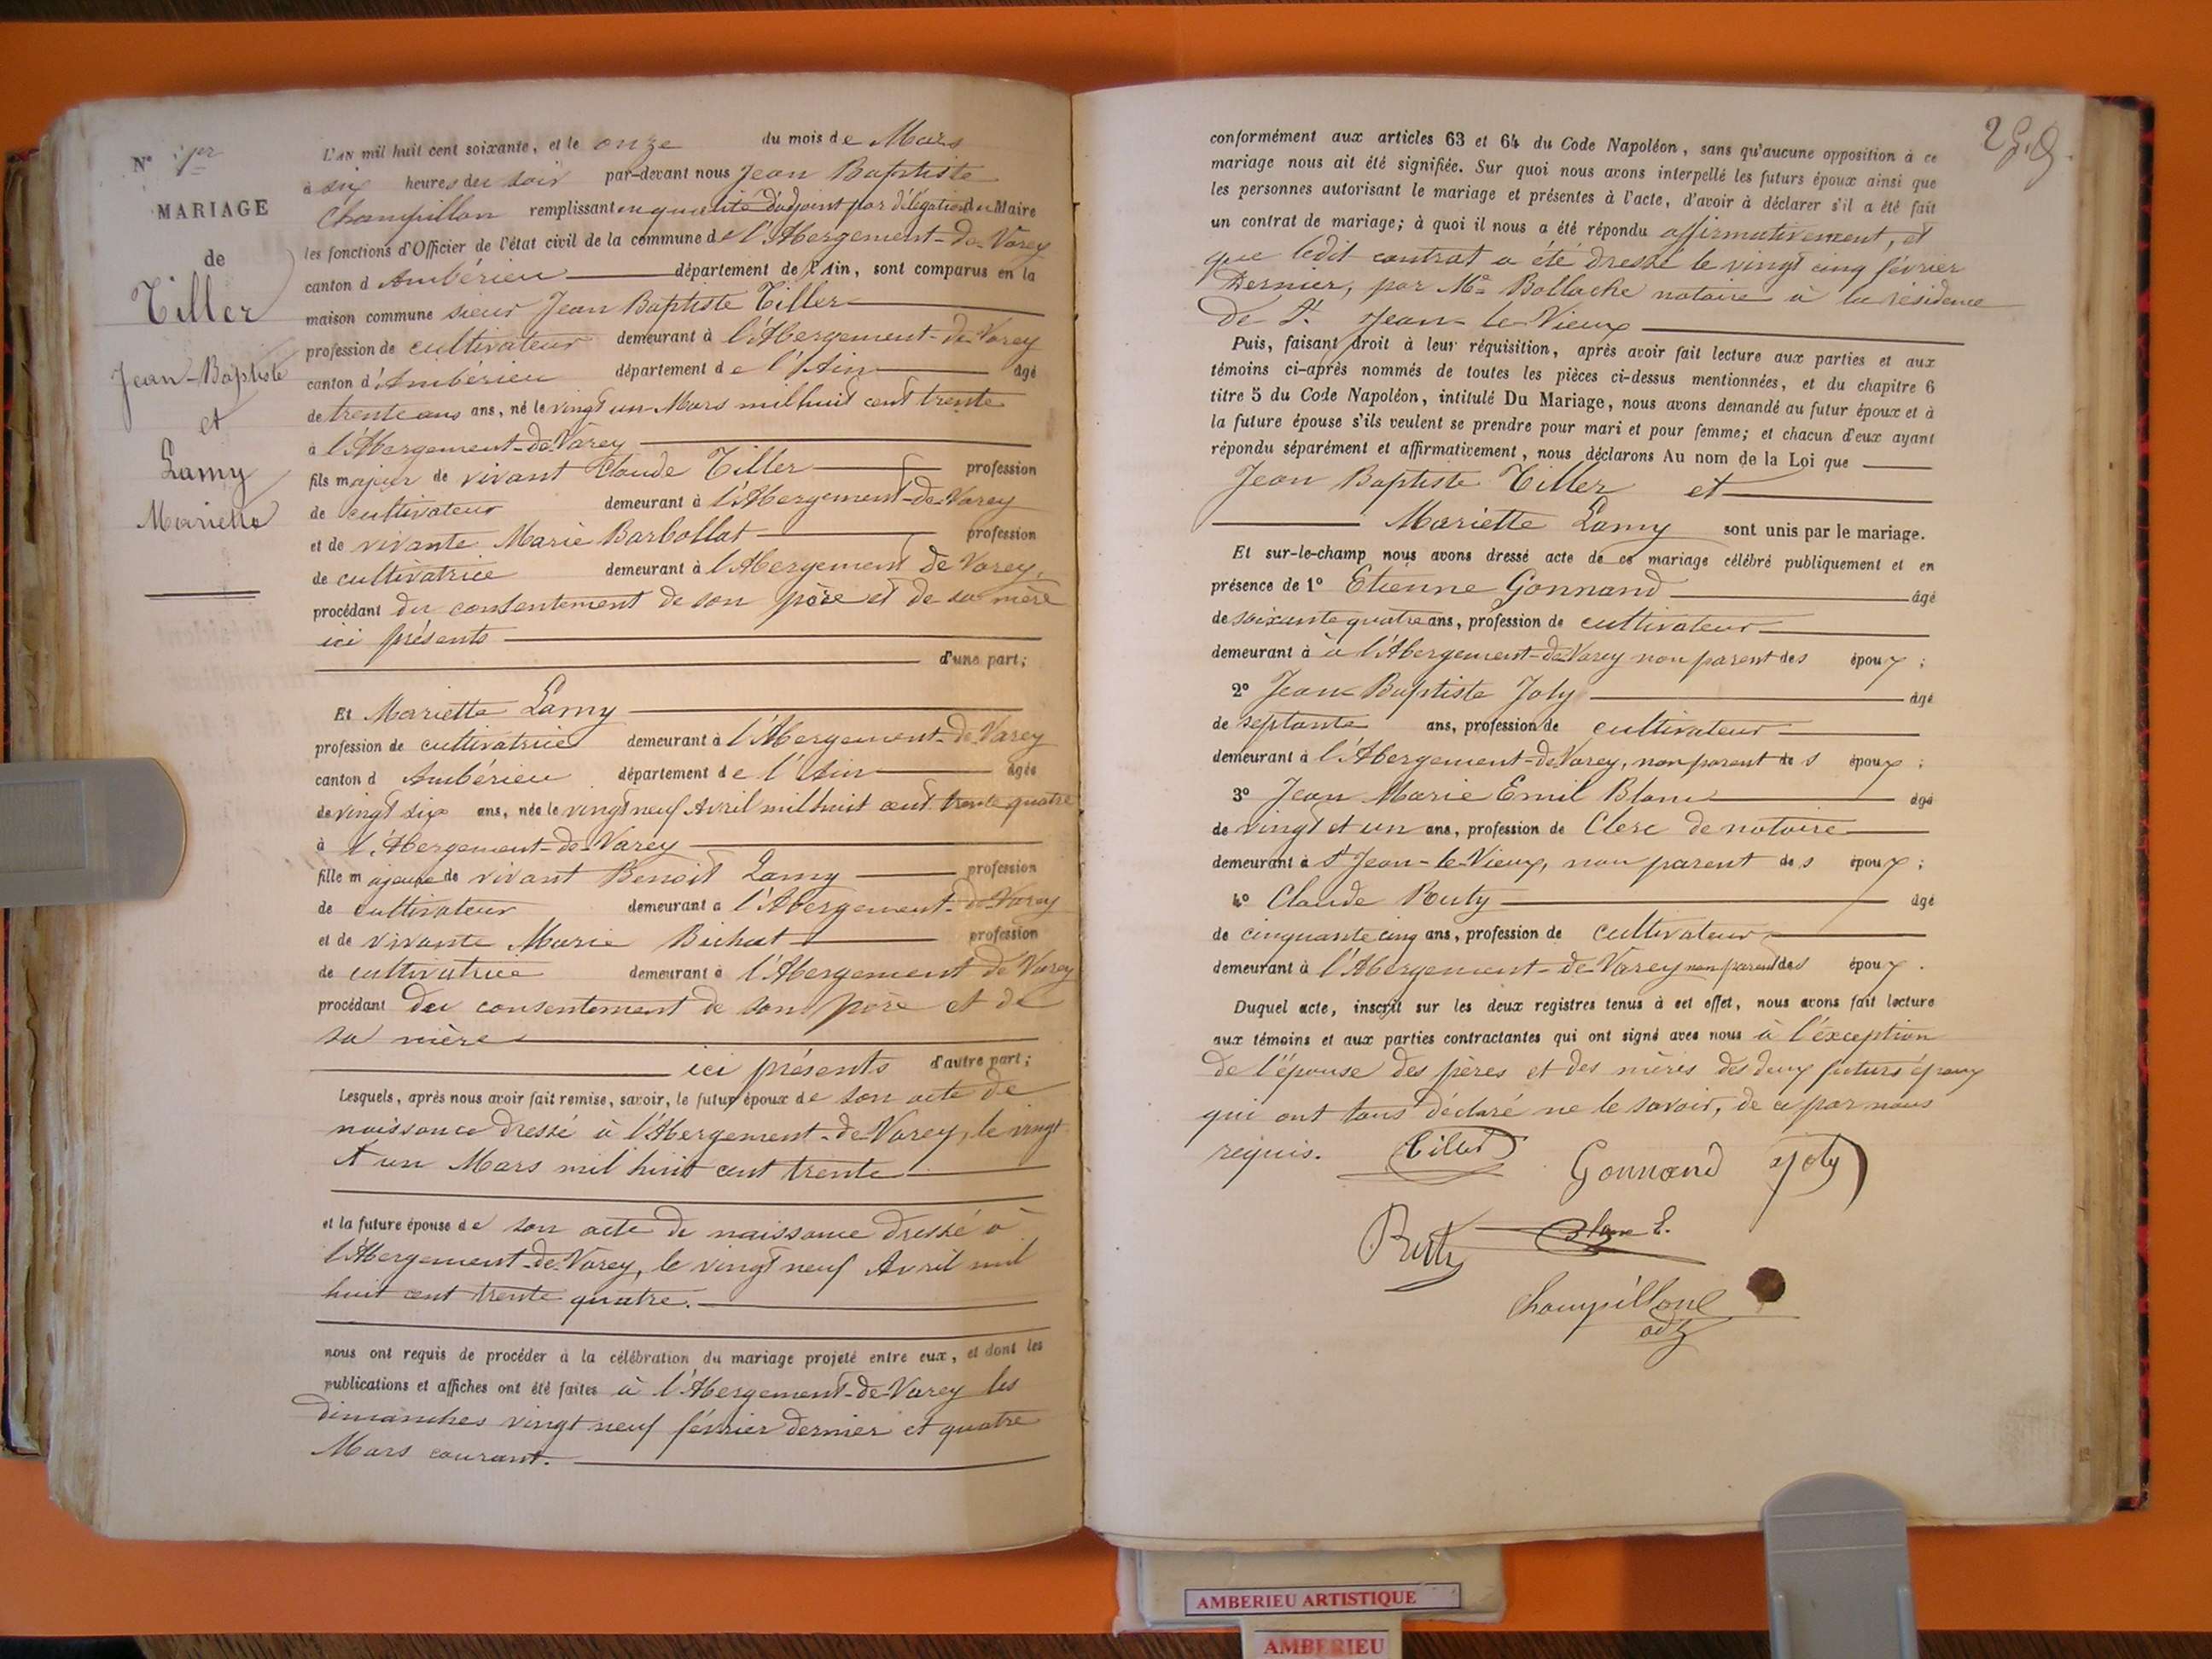 N° 1er
MARIAGE
de
Tiller
Jean-Baptiste
et
Lamy
Mariette
L'AN mil huit cent soixante, et le onze du mois de Mars
à six heures du soir par-devant nous Jean Baptiste
Champillon remplissant en qualité d'adjoint par délégation du Maire
les fonctions d'Officier de l'état civil de la commune de l'Abergement-de-Varey
canton d'Ambérieu département de l'Ain, sont comparus en la
maison commune sieur Jean Baptiste Tiller
profession de cultivateur demeurant à l'Abergement-de-Varey
canton d'Ambérieu département de l'Ain âgé
de trente ans ans, né le vingt un Mars mil huit cent trente
à l'Abergement-de-Varey
fils majeur de vivant Claude Tiller profession
de cultivateur demeurant à l'Abergement-de-Varey
et de vivante Marie Barbollat profession
de cultivatrice demeurant à l'Abergement de Varey,
procédant du consentement de son père et de sa mère
ici présents
d'une part;
Et Mariette Lamy
profession de cultivatrice demeurant à l'Abergement-de-Varey
canton d Ambérieu département de l'Ain âgée
de vingt six ans, née le vingt neuf Avril mil huit cent trente quatre
à l'Abergement-de-Varey
fille majeure de vivant Benoit Lamy profession
de cultivateur demeurant à l'Abergement-de-Varey
et de vivante Marie Bichat profession
de cultivatrice demeurant à l'Abergement de Varey
procédant du consentement de son père et de
sa mère
ici présents d'autre part;
Lesquels, après nous avoir fait remise, savoir, le futur époux de son acte de
naissance dressé à l'Abergement-de-Varey, le vingt
et un Mars mil huit cent trente
et la future épouse de son acte de naissance dressé à
l'Abergement-de-Varey, le vingt neuf Avril mil
huit cent trente quatre.
nous ont requis de procéder à la célébration du mariage projeté entre eux, et dont les
publications et affiches ont été faites à l'Abergement-de-Varey les
dimanches vingt neuf février dernier et quatre
Mars courant.
conformément aux articles 63 et 64 du Code Napoléon, sans qu'aucune opposition à ce
mariage nous ait été signifiée. Sur quoi nous avons interpellé les futurs époux ainsi que
les personnes autorisant le mariage et présentes à l'acte, d'avoir à déclarer s'il a été fait
un contrat de mariage; à quoi il nous a été répondu affirmativement, et
que ledit contrat a été dressé le vingt cinq février
Dernier, par Me Bollache notaire à la résidence
de St. Jean-le-Vieux
Puis, faisant droit à leur réquisition, après avoir fait lecture aux parties et aux
témoins ci-après nommés de toutes les pièces ci-dessus mentionnées, et du chapitre 6
titre 5 du Code Napoléon, intitulé Du Mariage, nous avons demandé au futur époux et à
la future épouse s'ils veulent se prendre pour mari et pour femme; et chacun d'eux ayant
répondu séparément et affirmativement, nous déclarons Au nom de la Loi que
Jean Baptiste Tiller et
Mariette Lamy sont unis par le mariage.
Et sur-le-champ nous avons dressé acte de ce mariage célébré publiquement et en
présence de 1° Etienne Gonnand âgé
de soixante quatre ans, profession de cultivateur
demeurant à à l'Abergement-de-Varey non parent des époux;
2° Jean Baptiste Joly âgé
de septante ans, profession de cultivateur
demeurant à l'Abergement-de-Varey, non parent des époux;
3° Jean Marie Emil Blanc âgé
de vingt et un ans, profession de Clerc de notaire
demeurant à St Jean-le-Vieux, non parent des époux;
4° Claude Ruty âgé
de cinquante cinq ans, profession de cultivateur
demeurant à l'Abergement-de-Varey non parent des époux.
Duquel acte, inscrit sur les deux registres tenus à cet effet, nous avons fait lecture
aux témoins et aux parties contractantes qui ont signé avec nous à l'exception
de l'épouse des pères et des mères des deux futurs époux
qui ont tous déclaré ne le savoir, de ce par nous
requis. Tiller Gonnand Joly
Ruty Blanc E.
Champillon
adj
AMBERIEU ARTISTIQUE
AMBERIEU